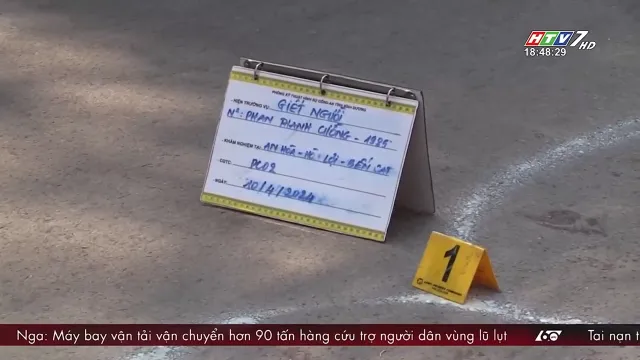 HTV7 HD
18:48:29
PHÒNG KỸ THUẬT HÌNH SỰ CÔNG AN TỈNH BÌNH DƯƠNG
- HIỆN TRƯỜNG VỤ: GIẾT NGƯỜI
Nº: PHAN THANH CHỐNG - 1985
- KHÁM NGHIỆM TẠI: AN HÒA - HÒA LỢI - BẾN CÁT
- CQTC: PC02
- NGÀY: 10/4/2024
1
Nga: Máy bay vận tải vận chuyển hơn 90 tấn hàng cứu trợ người dân vùng lũ lụt
60
Tai nạn t